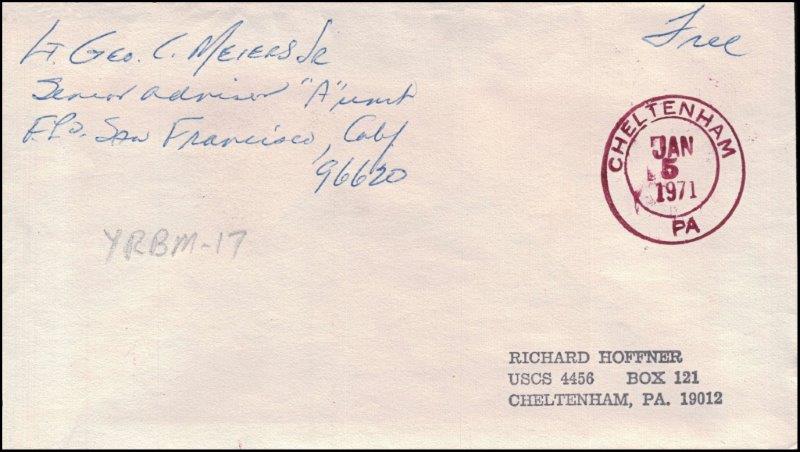 Lt. Geo. C. Meiers Jr
Senior advisor "A" unit
F.P.O. San Francisco, Calif
96620
Free
CHELTENHAM
JAN
5
1971
PA
YRBM-17
RICHARD HOFFNER
USCS 4456 BOX 121
CHELTENHAM, PA. 19012